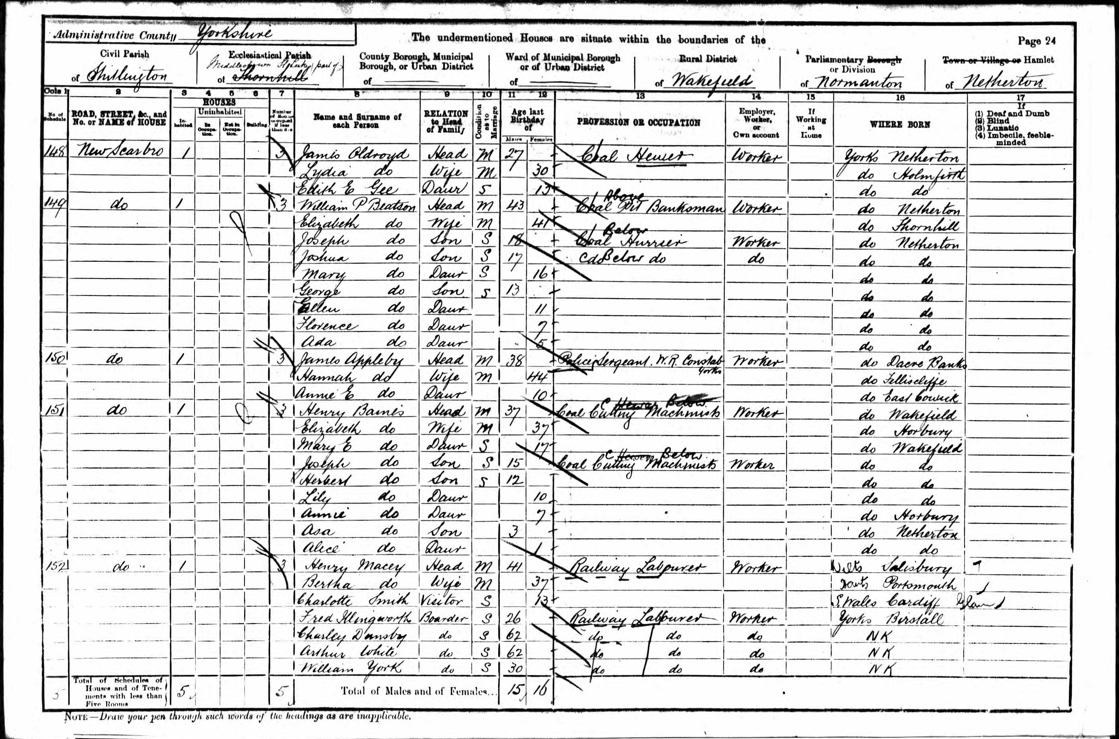 Administrative County Yorkshire
The undermentioned Houses are situate within the boundaries of the
Page 24
Civil Parish
of Shitlington
Ecclesiastical Parish
of Thornhill
County Borough, Municipal Borough, or Urban District
of
Ward of Municipal Borough or of Urban District
of
Rural District
of Wakefield
Parliamentary Borough or Division
of Normanton
Town or Village or Hamlet
of Netherton
Cols 1 2 3 4 5 6 7 8 9 10 11 12 13 14 15 16 17
No. of Schedule
ROAD, STREET, &c., and No. or NAME of HOUSE
HOUSES
Inhabited
Uninhabited
In Occupation
Not in Occupation
Building
Name and Surname of each Person
RELATION to Head of Family
Condition as to Marriage
Age last Birthday of
Males Females
PROFESSION OR OCCUPATION
Employer, Worker, or Own account
If Working at Home
WHERE BORN
If
(1) Deaf and Dumb
(2) Blind
(3) Lunatic
(4) Imbecile, feeble-minded
148 New Scarbro 1 3 James Oldroyd Head M 27 Coal Hewer Worker Yorks Netherton
Lydia do Wife M 30 do Holmfirth
Edith E Gee Daur S 13 do do
149 do 1 3 William P Beatson Head M 43 Coal Pit Above Banksman Worker do Netherton
Elizabeth do Wife M 41 do Thornhill
Joseph do Son S 18 Coal Below Hurrier Worker do Netherton
Joshua do Son S 17 do Below do do do do
Mary do Daur S 16 do do
George do Son S 13 do do
Ellen do Daur 11 do do
Florence do Daur 7 do do
Ada do Daur 5 do do
150 do 1 3 James Appleby Head M 38 Police Sergeant. W.R. Constab Yorks Worker do Dacre Banks
Hannah do Wife M 44 do Felliscliffe
Annie E do Daur 10 do East Cowick
151 do 1 3 Henry Baines Head M 37 Coal Cutting Machinists Worker do Wakefield
Elizabeth do Wife M 37 do Horbury
Mary E do Daur S 17 do Wakefield
Joseph do Son S 15 Coal Cutting Machinists Below Worker do do
Herbert do Son S 12 do do
Lily do Daur 10 do do
Annie do Daur 7 do Horbury
Asa do Son 3 do Netherton
Alice do Daur 1 do do
152 do 1 3 Henry Macey Head M 41 Railway Labourer Worker Wilts Salisbury
Bertha do Wife M 37 Hants Portsmouth
Charlotte Smith Visitor S 13 S Wales Cardiff
Fred Illingworth Boarder S 26 Railway Labourer Worker Yorks Birstall
Charley Dansby do S 62 do do do NK
Arthur White do S 62 do do do NK
William York do S 30 do do do NK
5 Total of Schedules of Houses and of Tenements with less than Five Rooms 5 5 Total of Males and of Females... 15 16
NOTE—Draw your pen through such words of the headings as are inapplicable.